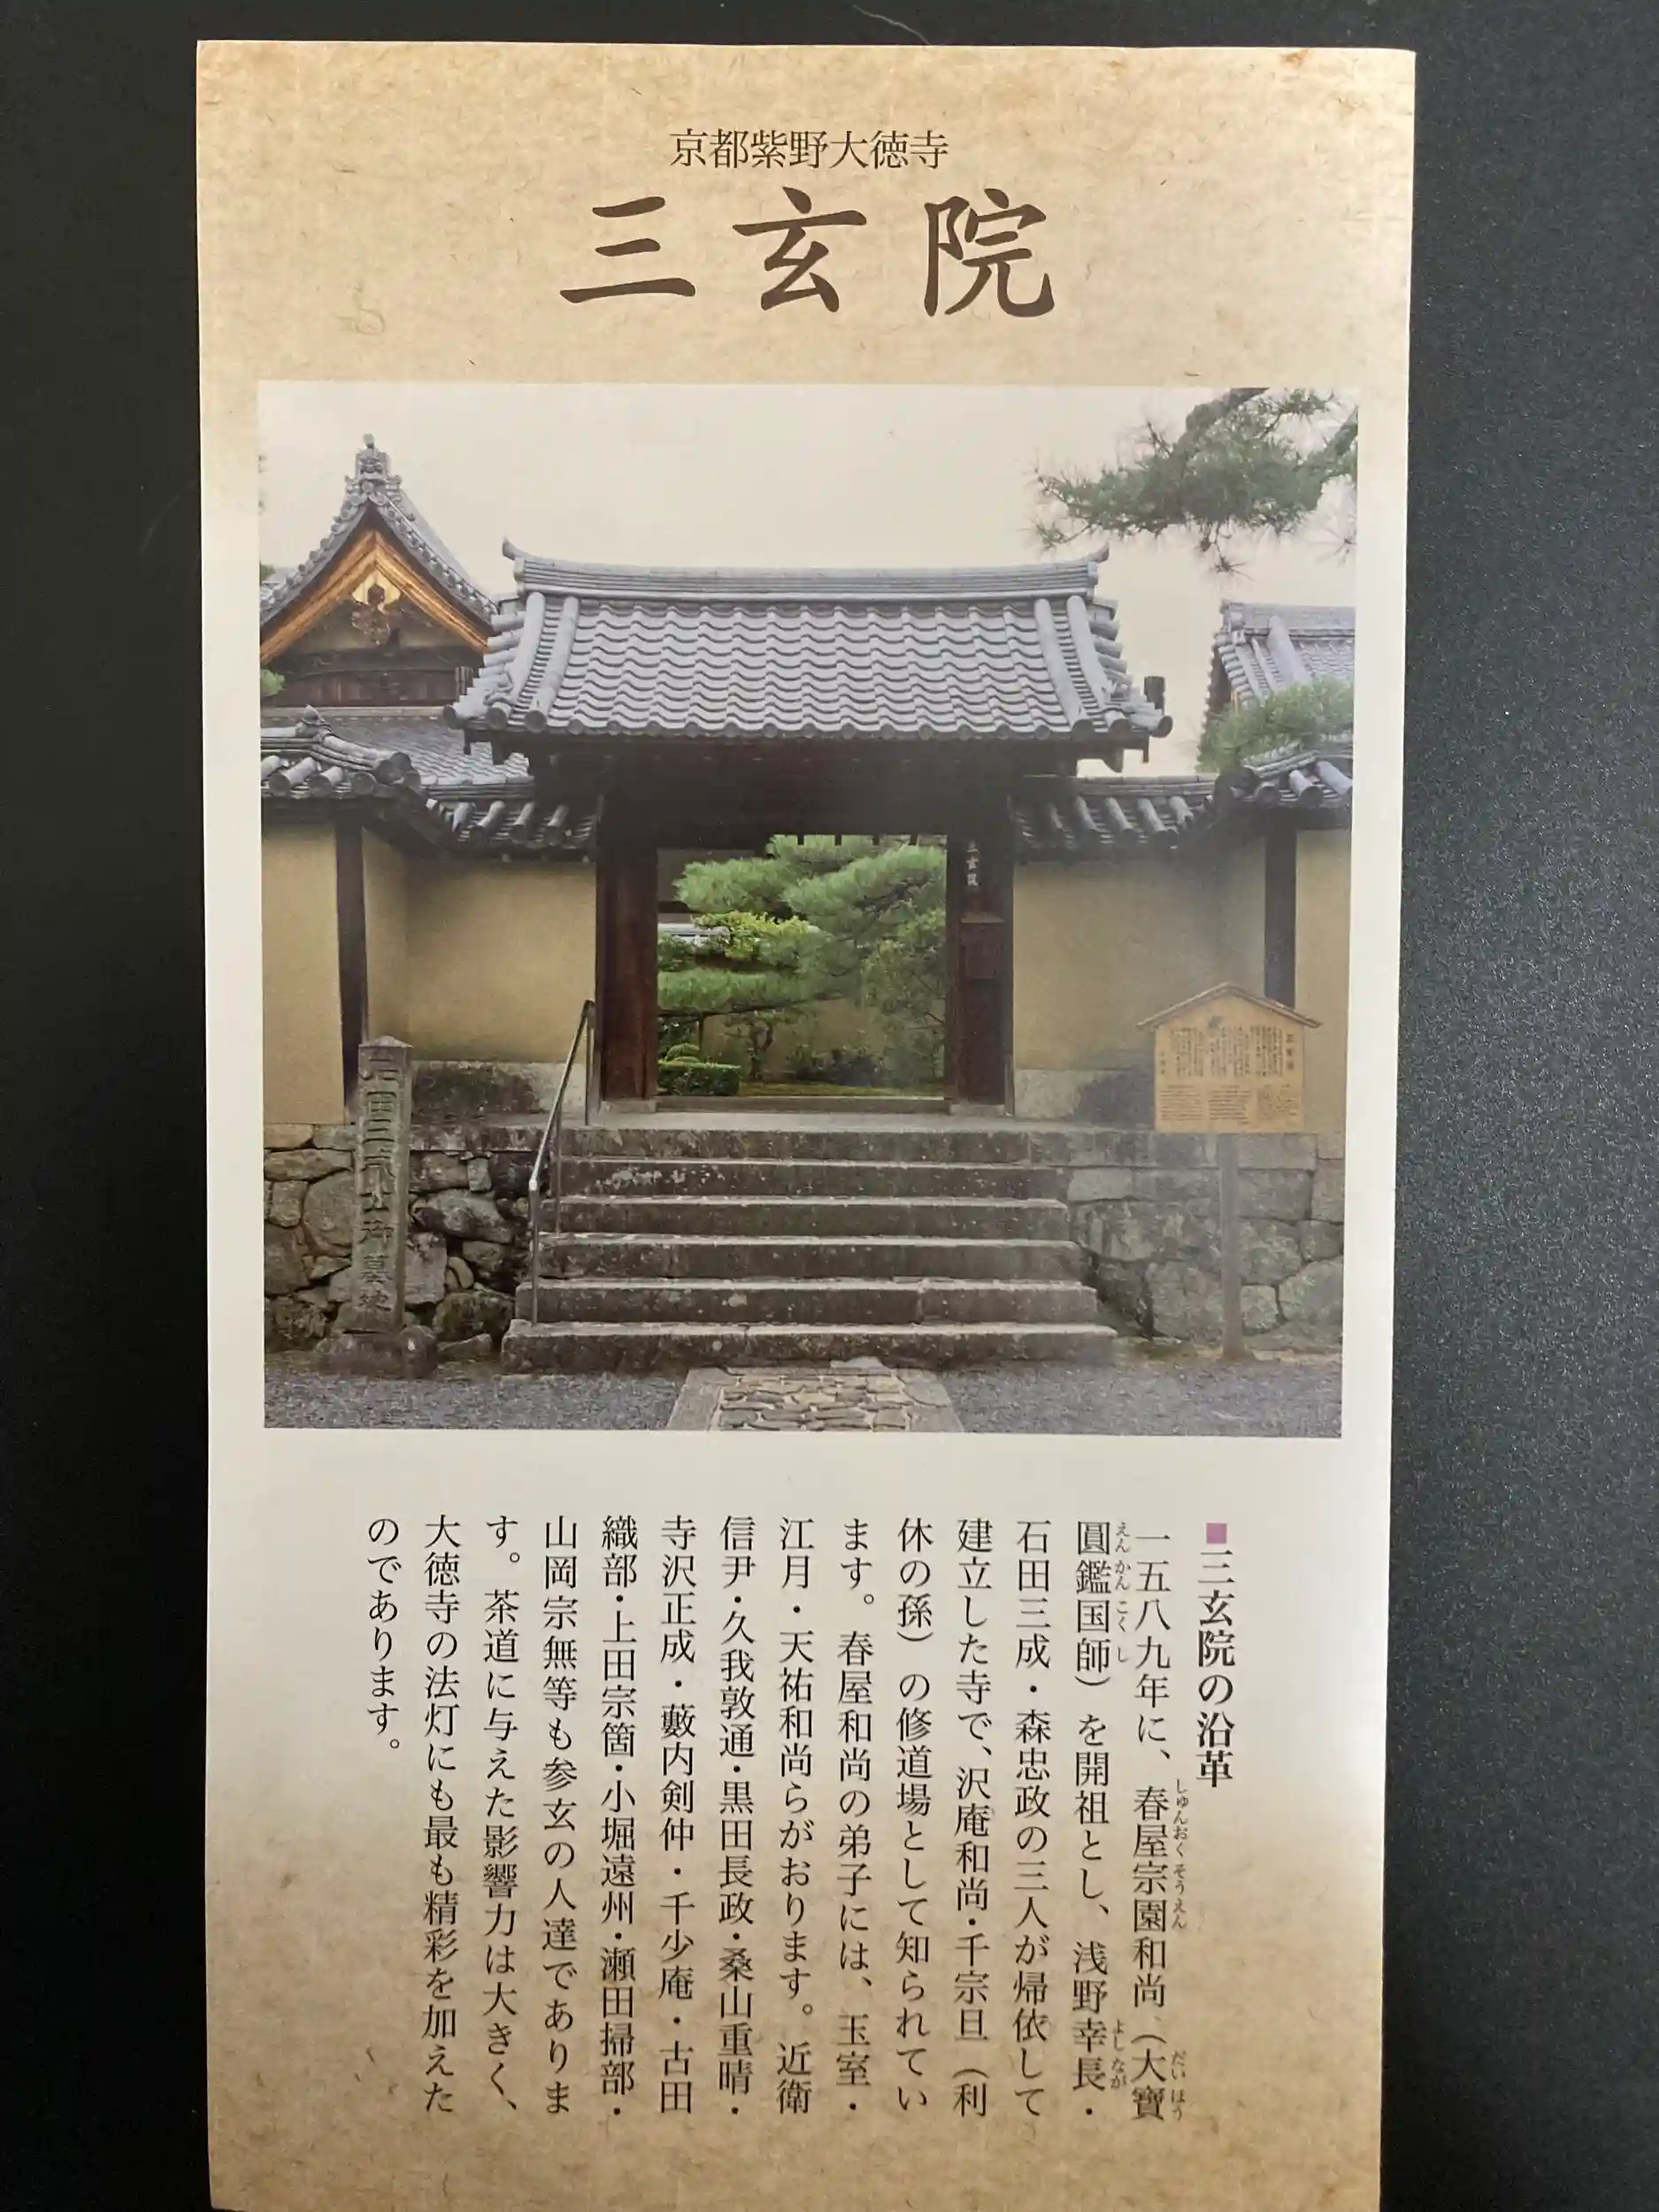 京都紫野大徳寺
三玄院
三玄院
石田三成公御墓地
■三玄院の沿革
一五八九年に、春屋宗園和尚（大寶
圓鑑国師）を開祖とし、浅野幸長・
石田三成・森忠政の三人が帰依して
建立した寺で、沢庵和尚・千宗旦（利
休の孫）の修道場として知られてい
ます。春屋和尚の弟子には、玉室・
江月・天祐和尚らがおります。近衛
信尹・久我敦通・黒田長政・桑山重晴・
寺沢正成・藪内剣仲・千少庵・古田
織部・上田宗箇・小堀遠州・瀬田掃部・
山岡宗無等も参玄の人達でありま
す。茶道に与えた影響力は大きく、
大徳寺の法灯にも最も精彩を加えた
のであります。
しゅんおく そうえん
だい ほう
えん かん こく し
よし なが